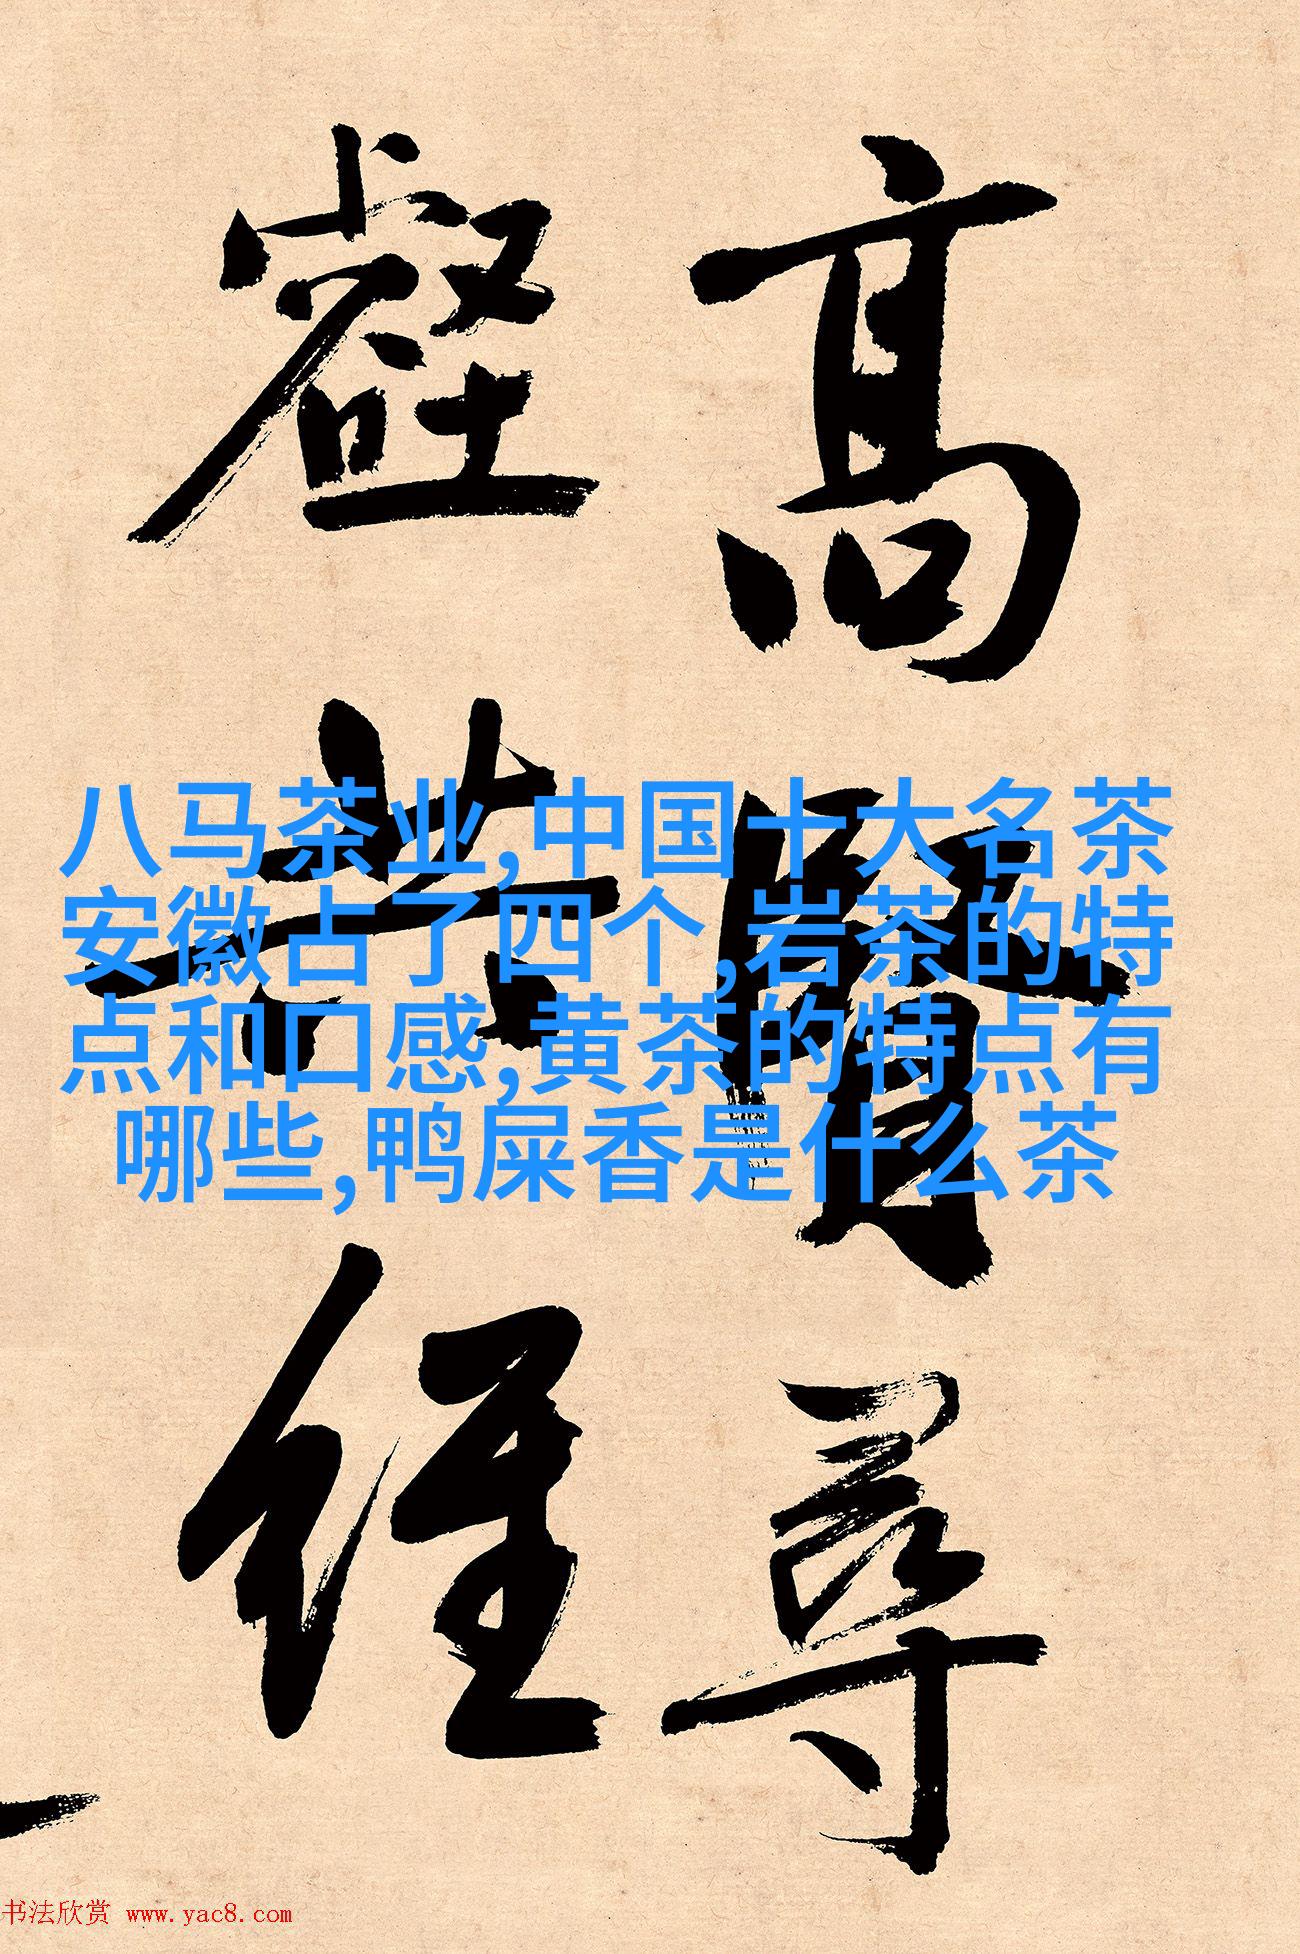 高賢尋
壑共經
八马茶业,中国十大名茶
安徽占了四个,岩茶的特
点和口感,黄茶的特点有
哪些,鸭屎香是什么茶
书法欣赏 www.yac8.com